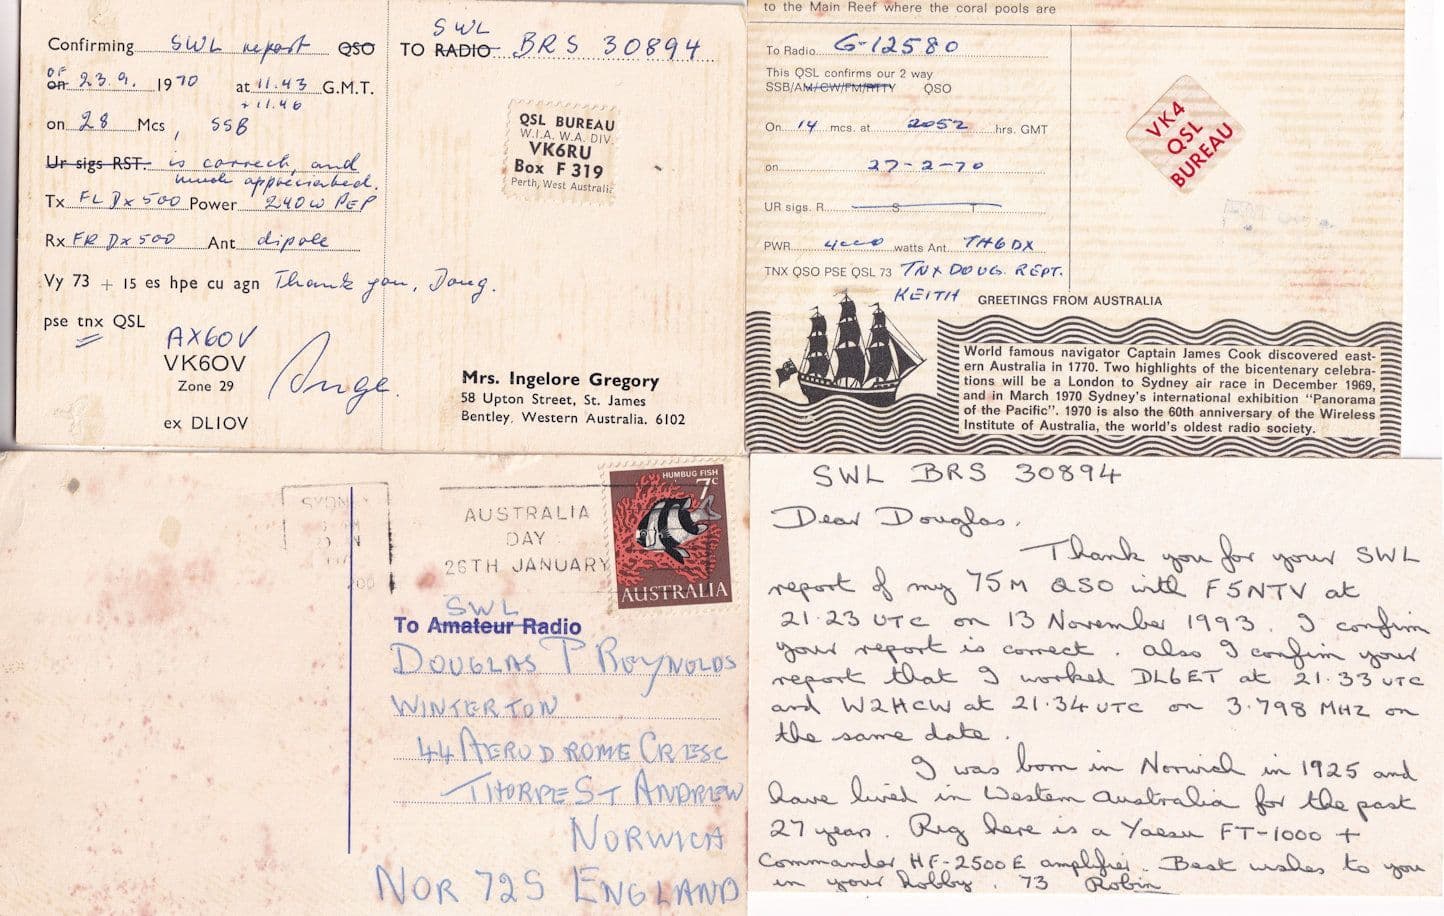 Confirming SWL report QSO
OF
on 23.9. 1970 at 11.43 G.M.T.
+ 11.46
on 28 Mcs, SSB
Ur sigs RST. is correct, and
much appreciated.
Tx FL Dx 500 Power 240W PEP
Rx FR Dx 500 Ant dipole
Vy 73 + 15 es hpe cu agn Thank you, Doug.
pse tnx QSL
AX6OV
VK6OV
Zone 29
ex DL1OV
Inge.
SWL
TO RADIO BRS 30894
QSL BUREAU
W.I.A. W.A. DIV.
VK6RU
Box F 319
Perth, West Australia
Mrs. Ingelore Gregory
58 Upton Street, St. James
Bentley, Western Australia. 6102
to the Main Reef where the coral pools are
To Radio G-12580
This QSL confirms our 2 way
SSB/AM/CW/FM/RTTY QSO
On 14 mcs. at 2052 hrs. GMT
on 27-2-70
UR sigs. R S T
PWR watts Ant. TH6DX
TNX QSO PSE QSL 73 TNX DOUG. REPT.
KEITH
VK4
QSL
BUREAU
GREETINGS FROM AUSTRALIA
World famous navigator Captain James Cook discovered east-
ern Australia in 1770. Two highlights of the bicentenary celebra-
tions will be a London to Sydney air race in December 1969,
and in March 1970 Sydney's international exhibition "Panorama
of the Pacific". 1970 is also the 60th anniversary of the Wireless
Institute of Australia, the world's oldest radio society.
SYDN
AUSTRALIA
DAY
26TH JANUARY
HUMBUG FISH
7c
AUSTRALIA
SWL
To Amateur Radio
DOUGLAS P REYNOLDS
WINTERTON
44 AERODROME CRESC
THORPE ST ANDREW
NORWICH
NOR 72S ENGLAND
SWL BRS 30894
Dear Douglas,
Thank you for your SWL
report of my 75M QSO with F5NTV at
21.23 UTC on 13 November 1993. I confirm
your report is correct. Also I confirm your
report that I worked DL6ET at 21.33 UTC
and W2HCW at 21.34 UTC on 3.798 MHZ on
the same date.
I was born in Norwich in 1925 and
have lived in Western Australia for the past
27 years. Rig here is a Yaesu FT-1000 +
Commander HF-2500E amplifier. Best wishes to you
in your hobby. 73 Robin